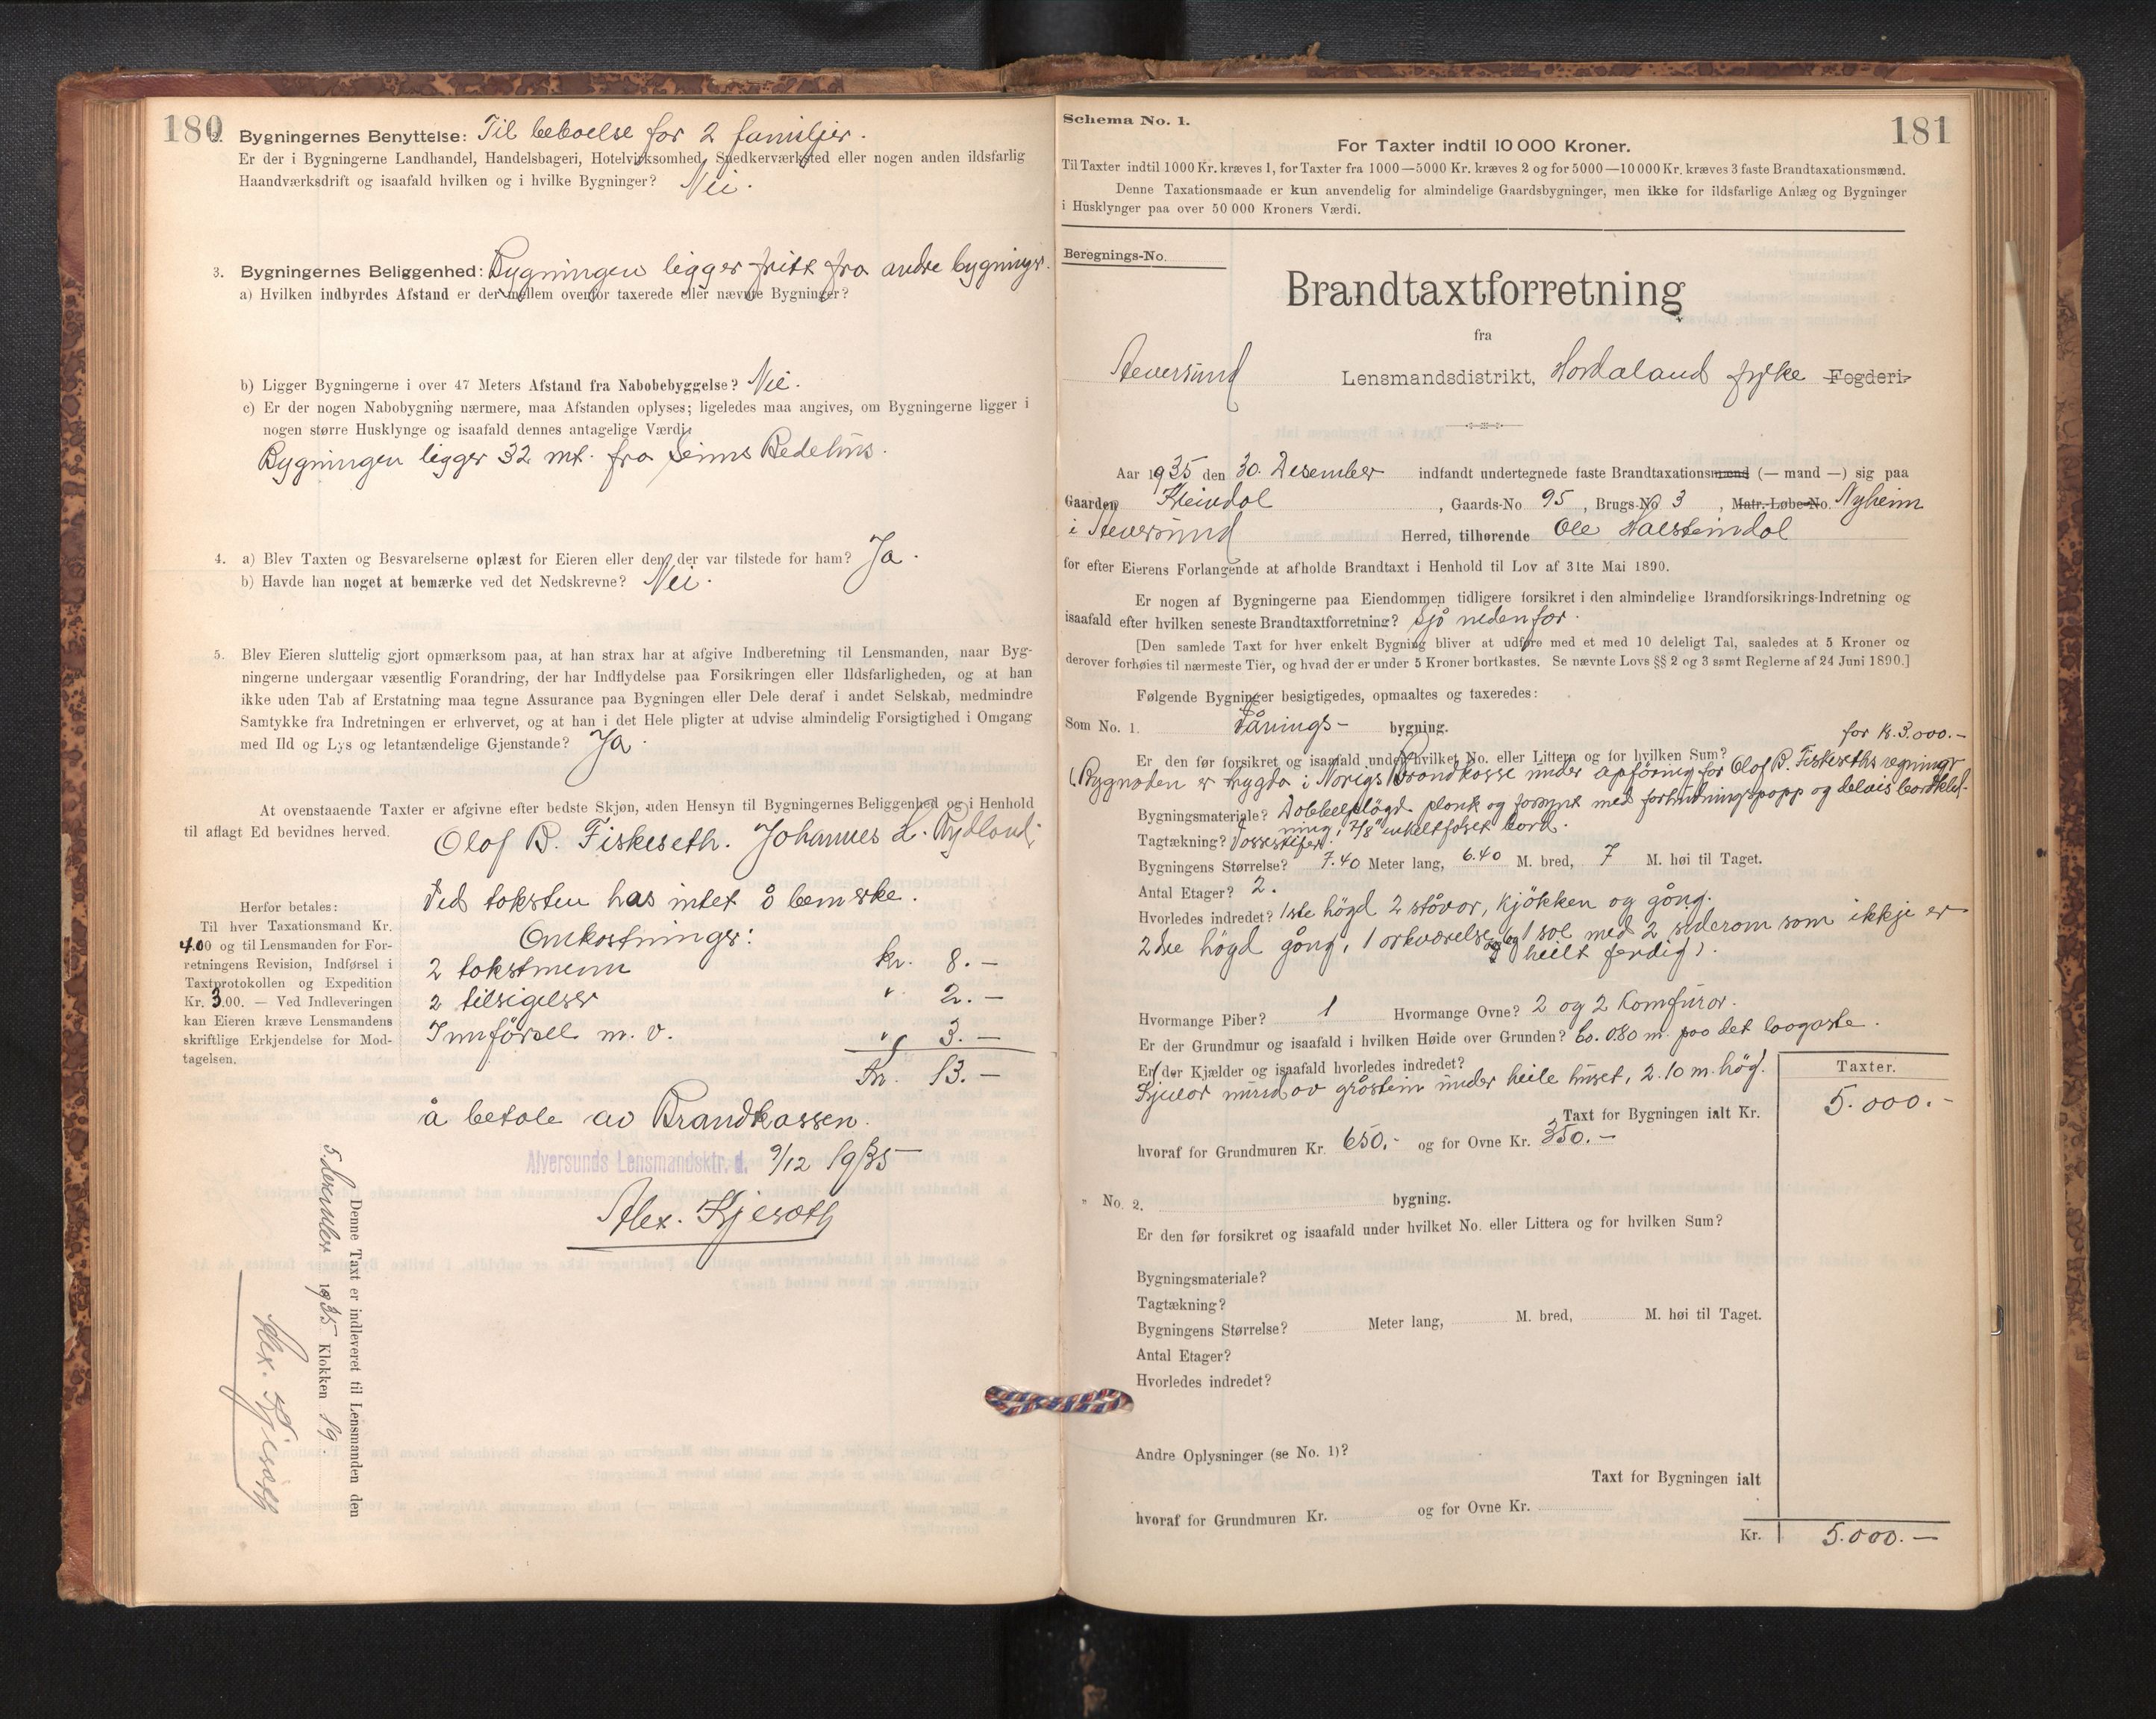 180
2. Bygningernes Benyttelse: Til beboelse for 2 familjer.
Er der i Bygningerne Landhandel, Handelsbageri, Hotelvirksomhed, Snedkerværksted eller nogen anden ildsfarlig
Haandværksdrift og isaafald hvilken og i hvilke Bygninger? Nei.
3. Bygningernes Beliggenhed: Bygningen ligger fritt fra andre bygninger.
a) Hvilken indbyrdes Afstand er der mellem ovenfor taxerede eller nævnte Bygninger?
b) Ligger Bygningerne i over 47 Meters Afstand fra Nabobebyggelse? Nei.
c) Er der nogen Nabobygning nærmere, maa Afstanden oplyses; ligeledes maa angives, om Bygningerne ligger i
nogen større Husklynge og isaafald dennes antagelige Værdi.
Bygningen ligger 32 mt. fra Seims Bedehus.
4. a) Blev Taxten og Besvarelserne oplæst for Eieren eller den, der var tilstede for ham? Ja.
b) Havde han noget at bemærke ved det Nedskrevne? Nei.
5. Blev Eieren sluttelig gjort opmærksom paa, at han strax har at afgive Indberetning til Lensmanden, naar Byg-
ningerne undergaar væsentlig Forandring, der har Indflydelse paa Forsikringen eller Ildsfarligheden, og at han
ikke uden Tab af Erstatning maa tegne Assurance paa Bygningen eller Dele deraf i andet Selskab, medmindre
Samtykke fra Indretningen er erhvervet, og at han i det Hele pligter at udvise almindelig Forsigtighed i Omgang
med Ild og Lys og letantændelige Gjenstande? Ja.
At ovenstaaende Taxter er afgivne efter bedste Skjøn, uden Hensyn til Bygningernes Beliggenhed og i Henhold
til aflagt Ed bevidnes herved.
Olof B. Fiskeseth. Johannes L. Rydland.
Ved taksten has intet å bemerke.
Herfor betales:
Til hver Taxationsmand Kr.
4.00 og til Lensmanden for For-
retningens Revision, Indførsel i
Taxtprotokollen og Expedition
Kr. 3.00. — Ved Indleveringen
kan Eieren kræve Lensmandens
skriftlige Erkjendelse for Mod-
tagelsen.
Omkostninger:
2 takstmenn kr. 8.—
2 tilsigelser " 2.—
Innförsel m. v. " 3.—
Kr. 13.—
å betale av Brandkassen.
Alversunds Lensmandsktr. d. 9/12 1935
Alex. Kjesæth
Denne Taxt er indleveret til Lensmanden den
5. desember 1935 Klokken 19.
Alex. Kjesæth
181
Schema No. 1.
For Taxter indtil 10 000 Kroner.
Til Taxter indtil 1000 Kr. kræves 1, for Taxter fra 1000—5000 Kr. kræves 2 og for 5000—10 000 Kr. kræves 3 faste Brandtaxationsmænd.
Denne Taxationsmaade er kun anvendelig for almindelige Gaardsbygninger, men ikke for ildsfarlige Anlæg og Bygninger
i Husklynger paa over 50 000 Kroners Værdi.
Beregnings-No.
Brandtaxtforretning
fra
Alversund Lensmandsdistrikt, Hordaland fylke Fogderi.
Aar 1935 den 30. Desember indfandt undertegnede faste Brandtaxationsmænd (— mand —) sig paa
Gaarden Kleivdal, Gaards-No 95, Brugs-No 3, Matr.-Løbe-No. Nyheim
i Alversund Herred, tilhørende Ole Halsteindal
for efter Eierens Forlangende at afholde Brandtaxt i Henhold til Lov af 31te Mai 1890.
Er nogen af Bygningerne paa Eiendommen tidligere forsikret i den almindelige Brandforsikrings-Indretning og
isaafald efter hvilken seneste Brandtaxtforretning? Sjå nedenfor.
[Den samlede Taxt for hver enkelt Bygning bliver at udføre med et med 10 deleligt Tal, saaledes at 5 Kroner og
derover forhøies til nærmeste Tier, og hvad der er under 5 Kroner bortkastes. Se nævnte Lovs §§ 2 og 3 samt Reglerne af 24 Juni 1890.]
Følgende Bygninger besigtigedes, opmaaltes og taxeredes:
Som No. 1. Vånings- bygning.
for k. 3.000.—
Er den før forsikret og isaafald under hvilket No. eller Littera og for hvilken Sum?
Bygnaden er trygda i Noregs Brandkasse under opföring for Olof B. Fiskeseths regning
Bygningsmateriale? Dobbelplögd plank og forsynt med forhudningspapp og delvis bordkled-
ning, 7/8" enkeltfalset bord.
Tagtækning? Vosseskifer.
Bygningens Størrelse? 7.40 Meter lang, 6.40 M. bred, 7 M. høi til Taget.
Antal Etager? 2.
Hvorledes indredet? 1ste högd 2 stovor, kjökken og gång.
2dre högd gång, 1 arkværelse og 1 sal med 2 siderom som ikkje er
heilt ferdig.
Hvormange Piber? 1 Hvormange Ovne? 2 og 2 komfuror.
Er der Grundmur og isaafald i hvilken Høide over Grunden? Ca. 0.80 m. paa det laagaste.
Er der Kjælder og isaafald hvorledes indredet?
Kjellar murd av gråstein under heile huset, 2.10 m. hög.
Taxter.
Taxt for Bygningen ialt Kr. 5.000.-
hvoraf for Grundmuren Kr. 650.- og for Ovne Kr. 350.—
" No. 2. bygning.
Er den før forsikret og isaafald under hvilket No. eller Littera og for hvilken Sum?
Bygningsmateriale?
Tagtækning?
Bygningens Størrelse? Meter lang, M. bred, M. høi til Taget.
Antal Etager?
Hvorledes indredet?
Andre Oplysninger (se No. 1)?
Taxt for Bygningen ialt
hvoraf for Grundmuren Kr. og for Ovne Kr.
Kr. 5.000.—